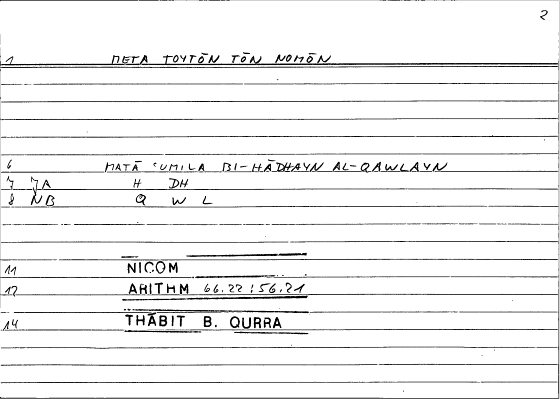 2
1 META TOYTŌN TŌN NOMŌN
6 MATĀ ʿUMILA BI-HĀDHAYN AL-QAWLAYN
7 JA H DH
8 NB Q W L
11 NICOM
12 ARITHM 66.22 : 56.21
14 THĀBIT B. QURRA